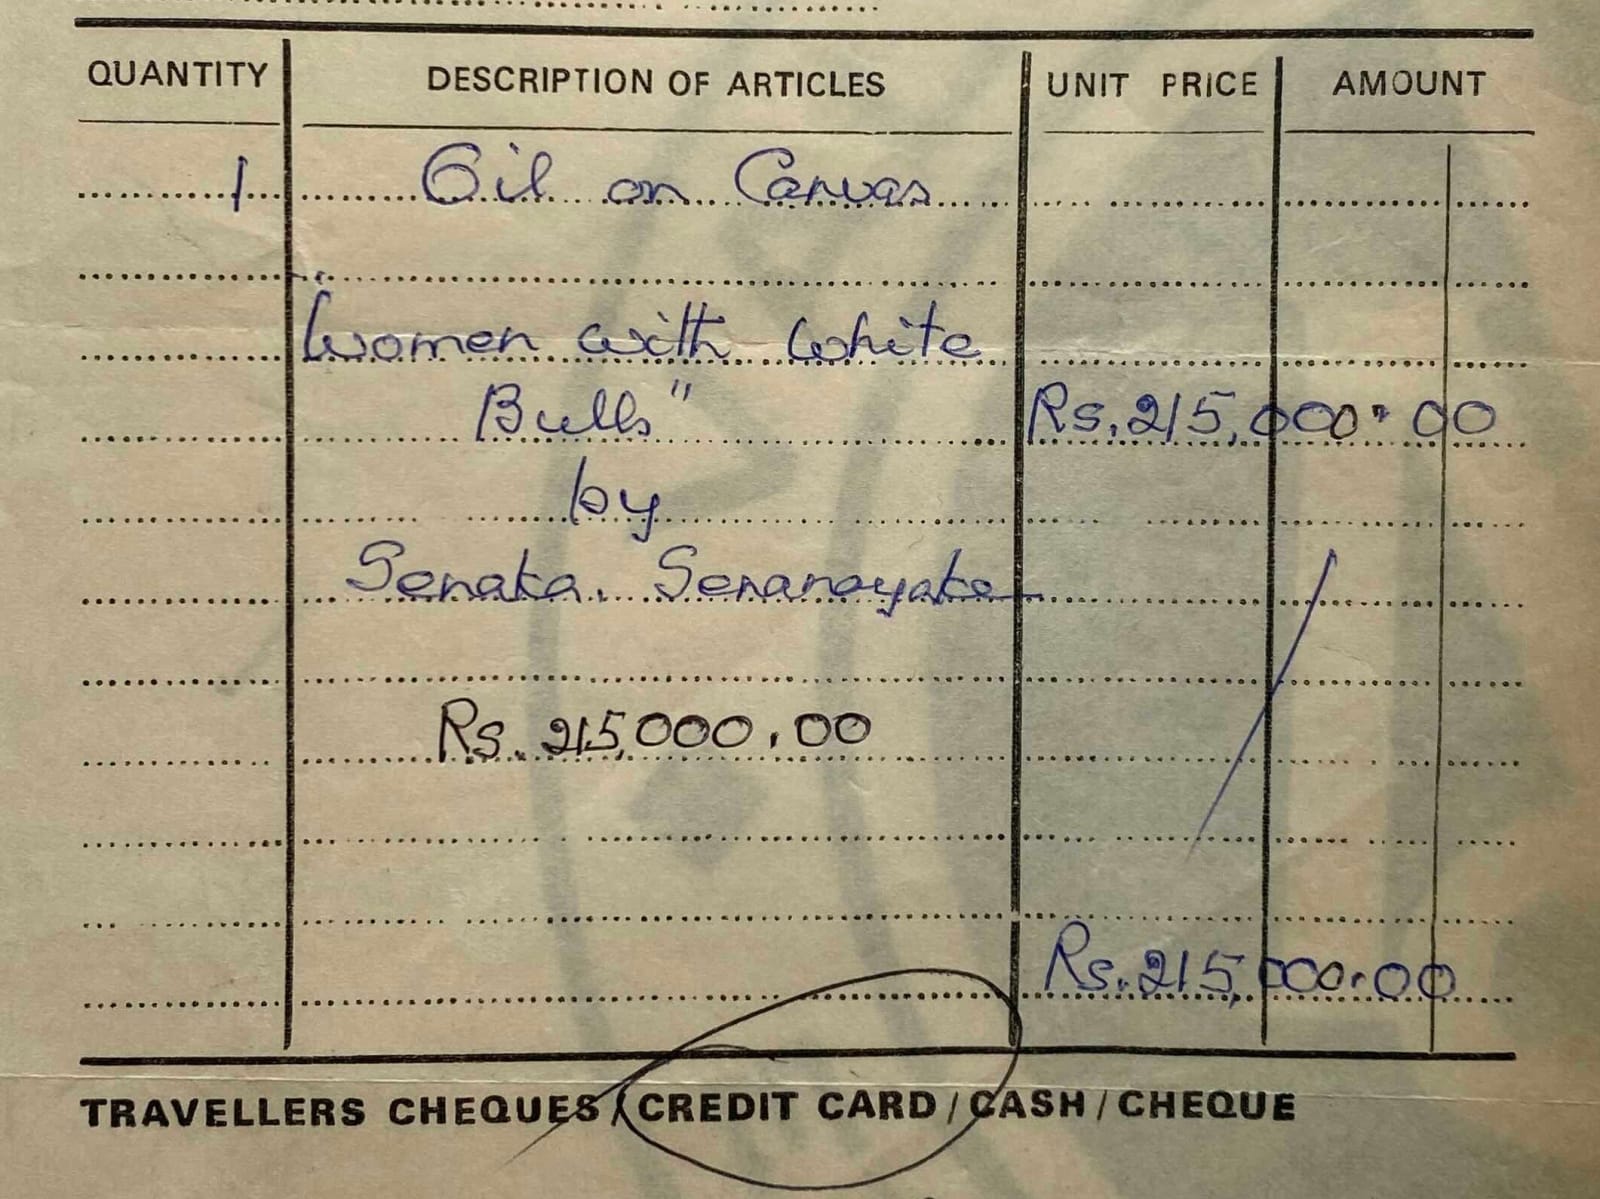 QUANTITY DESCRIPTION OF ARTICLES UNIT PRICE AMOUNT
1 Oil on Canvas
"Women with White
Bulls" Rs. 215,000.00
by
Senaka Senanayake
Rs. 215,000.00
Rs. 215,000.00
TRAVELLERS CHEQUES / CREDIT CARD / CASH / CHEQUE